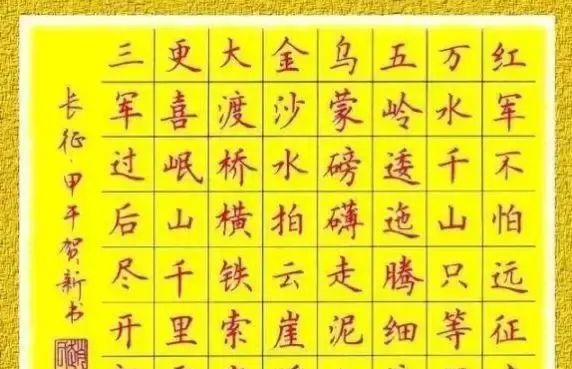 红军不怕远征
万水千山只等
五岭逶迤腾细
乌蒙磅礴走泥
金沙水拍云崖
大渡桥横铁索
更喜岷山千里
三军过后尽开
长征·甲午贺新书